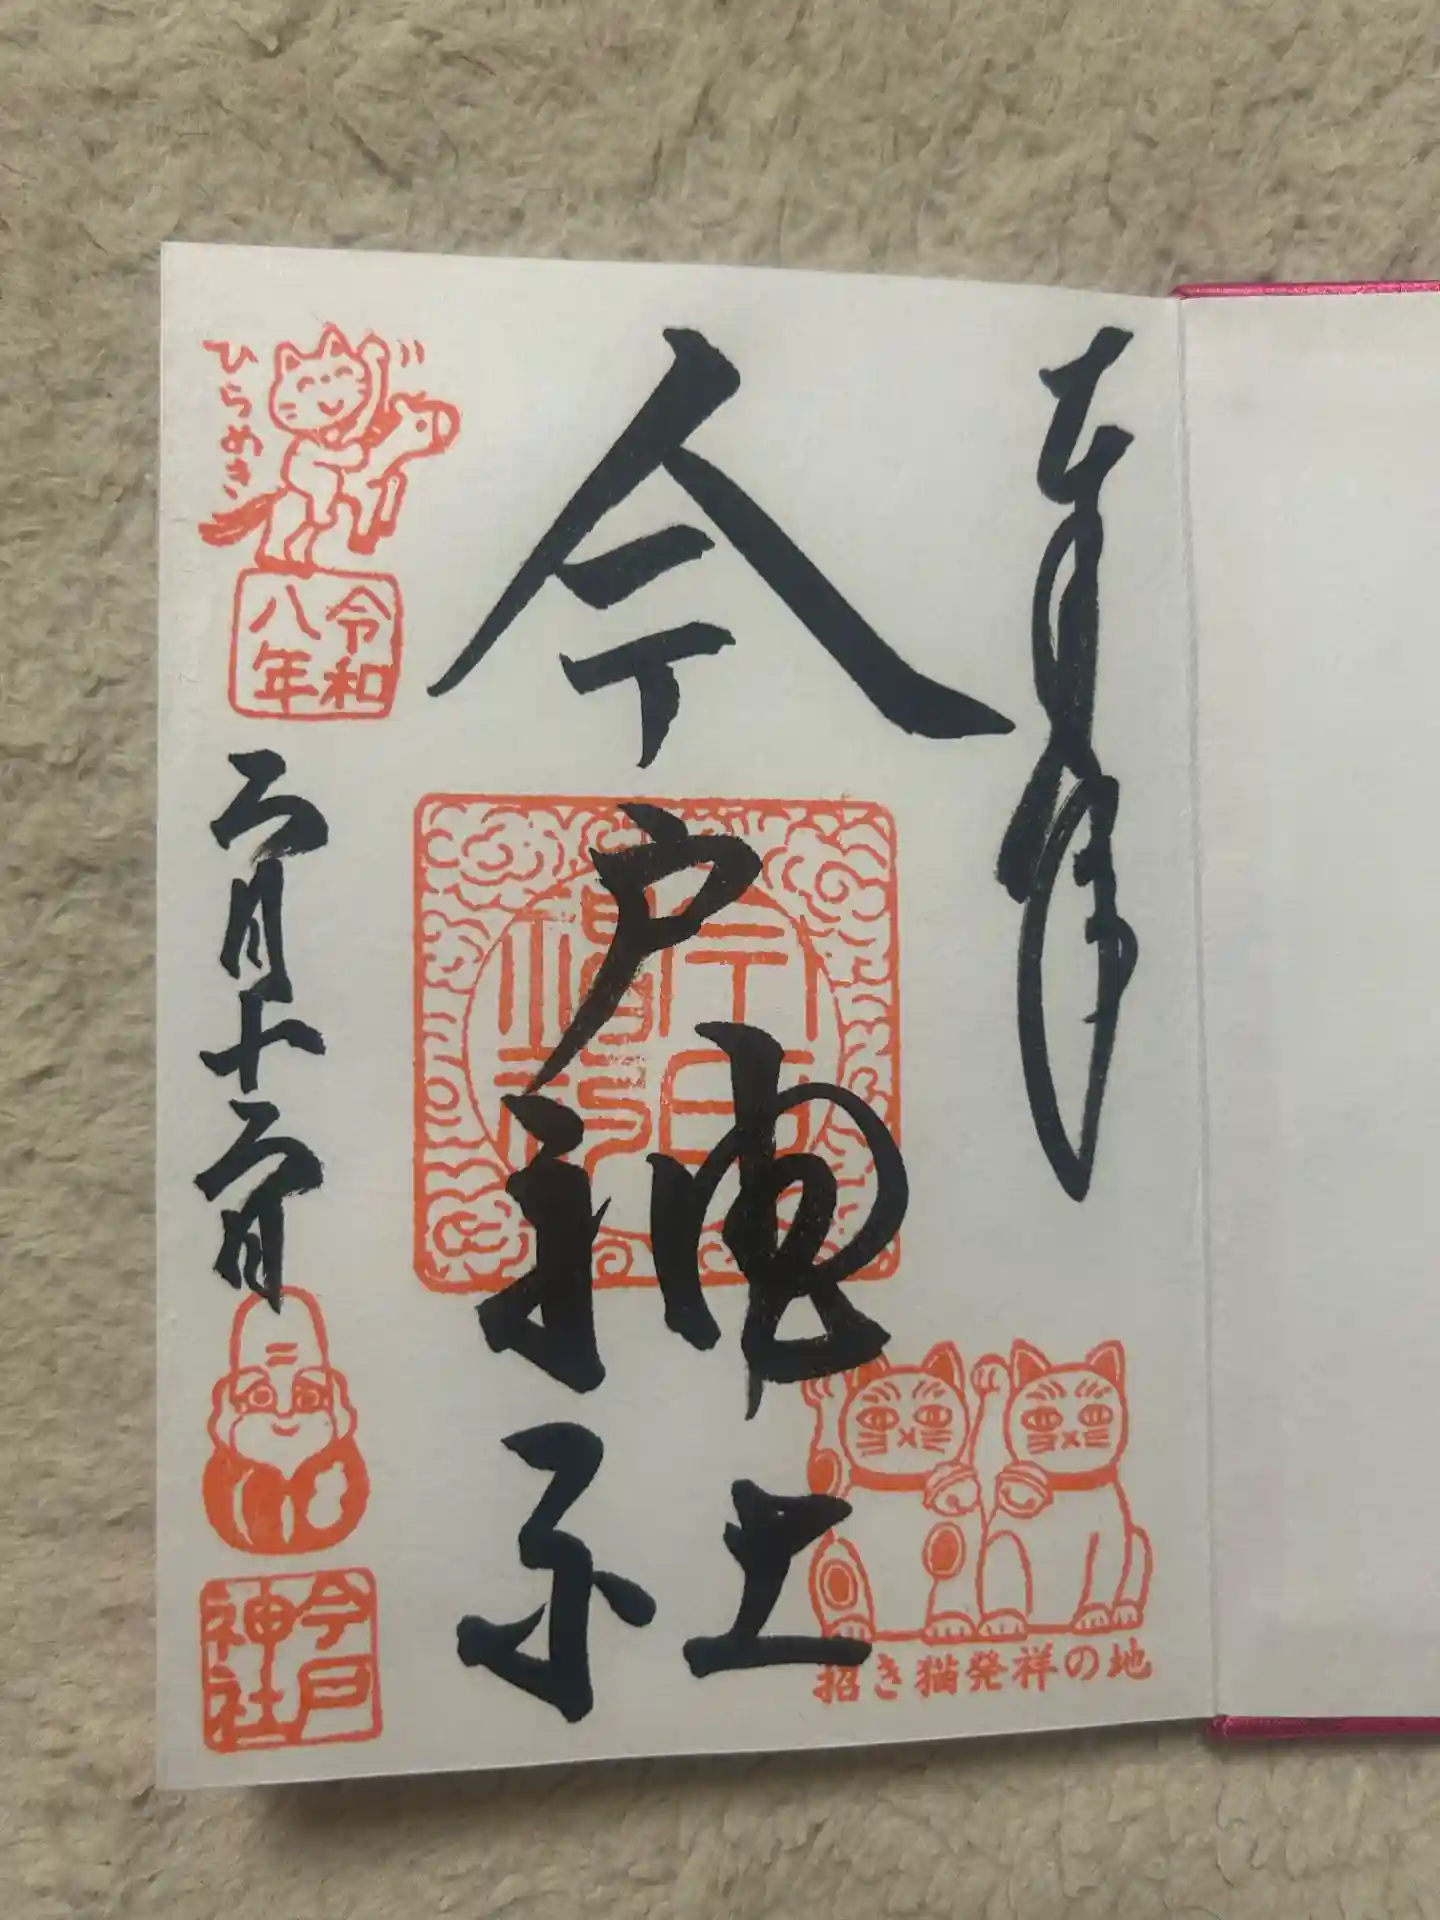 奉拝
今戸神社
今戸
福禄
招き猫発祥の地
ひらめき
令和
八年
二月十二日
今戸
神社